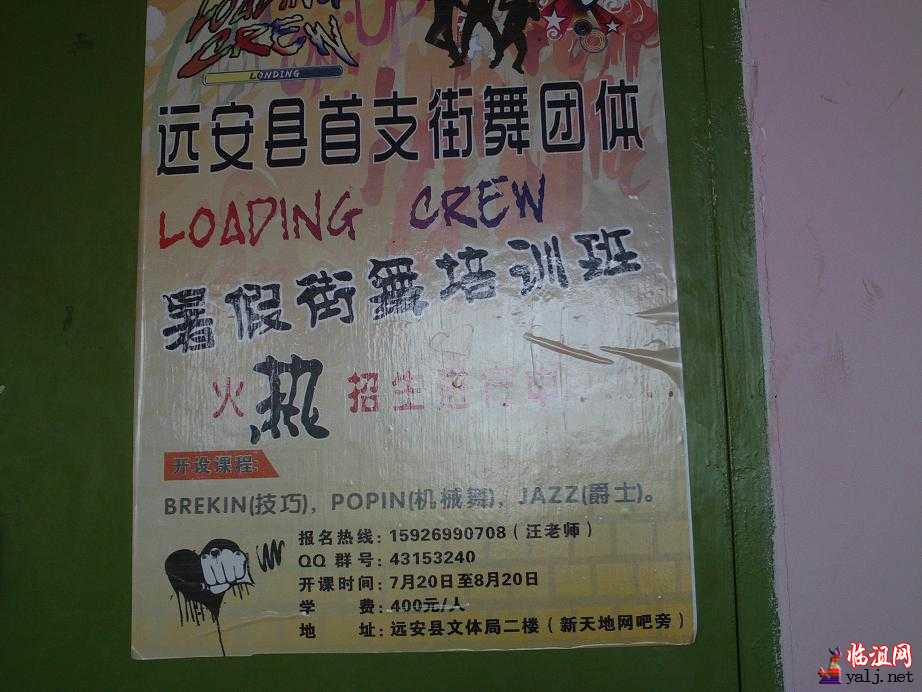 LOADING
CREW
LONDING
远安县首支街舞团体
LOADING CREW
暑假街舞培训班
火热招生进行中......
开设课程:
BREKIN(技巧),POPIN(机械舞),JAZZ(爵士)。
报名热线:15926990708(汪老师)
QQ 群号:43153240
开课时间:7月20日至8月20日
学 费:400元/人
地 址:远安县文体局二楼(新天地网吧旁)
临沮网
yalj.net